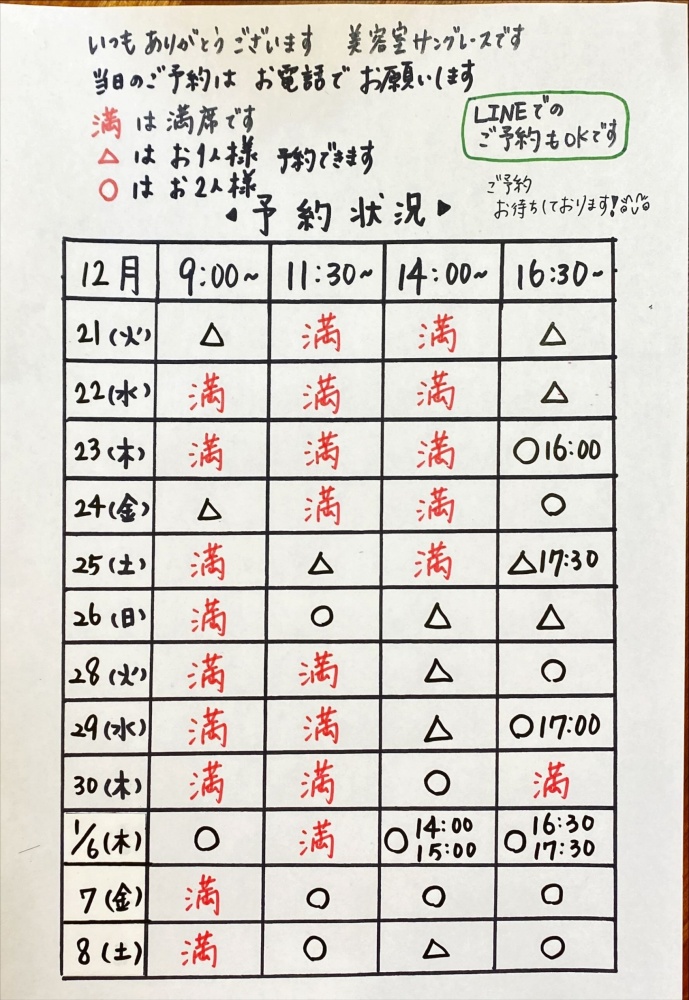 いつもありがとうございます 美容室サングレースです
当日のご予約は お電話で お願いします
満 は満席です
△ はお1人様 予約できます
○ はお2人様
LINEでの
ご予約もOKです
ご予約
お待ちしております!
予約状況
12月 9:00~ 11:30~ 14:00~ 16:30~
21(火) △ 満 満 △
22(水) 満 満 満 △
23(木) 満 満 満 ○16:00
24(金) △ 満 満 ○
25(土) 満 △ 満 △17:30
26(日) 満 ○ △ △
28(火) 満 満 △ ○
29(水) 満 満 △ ○17:00
30(木) 満 満 ○ 満
1/6(木) ○ 満 ○14:00 15:00 ○16:30 17:30
7(金) 満 ○ ○ ○
8(土) 満 ○ △ ○